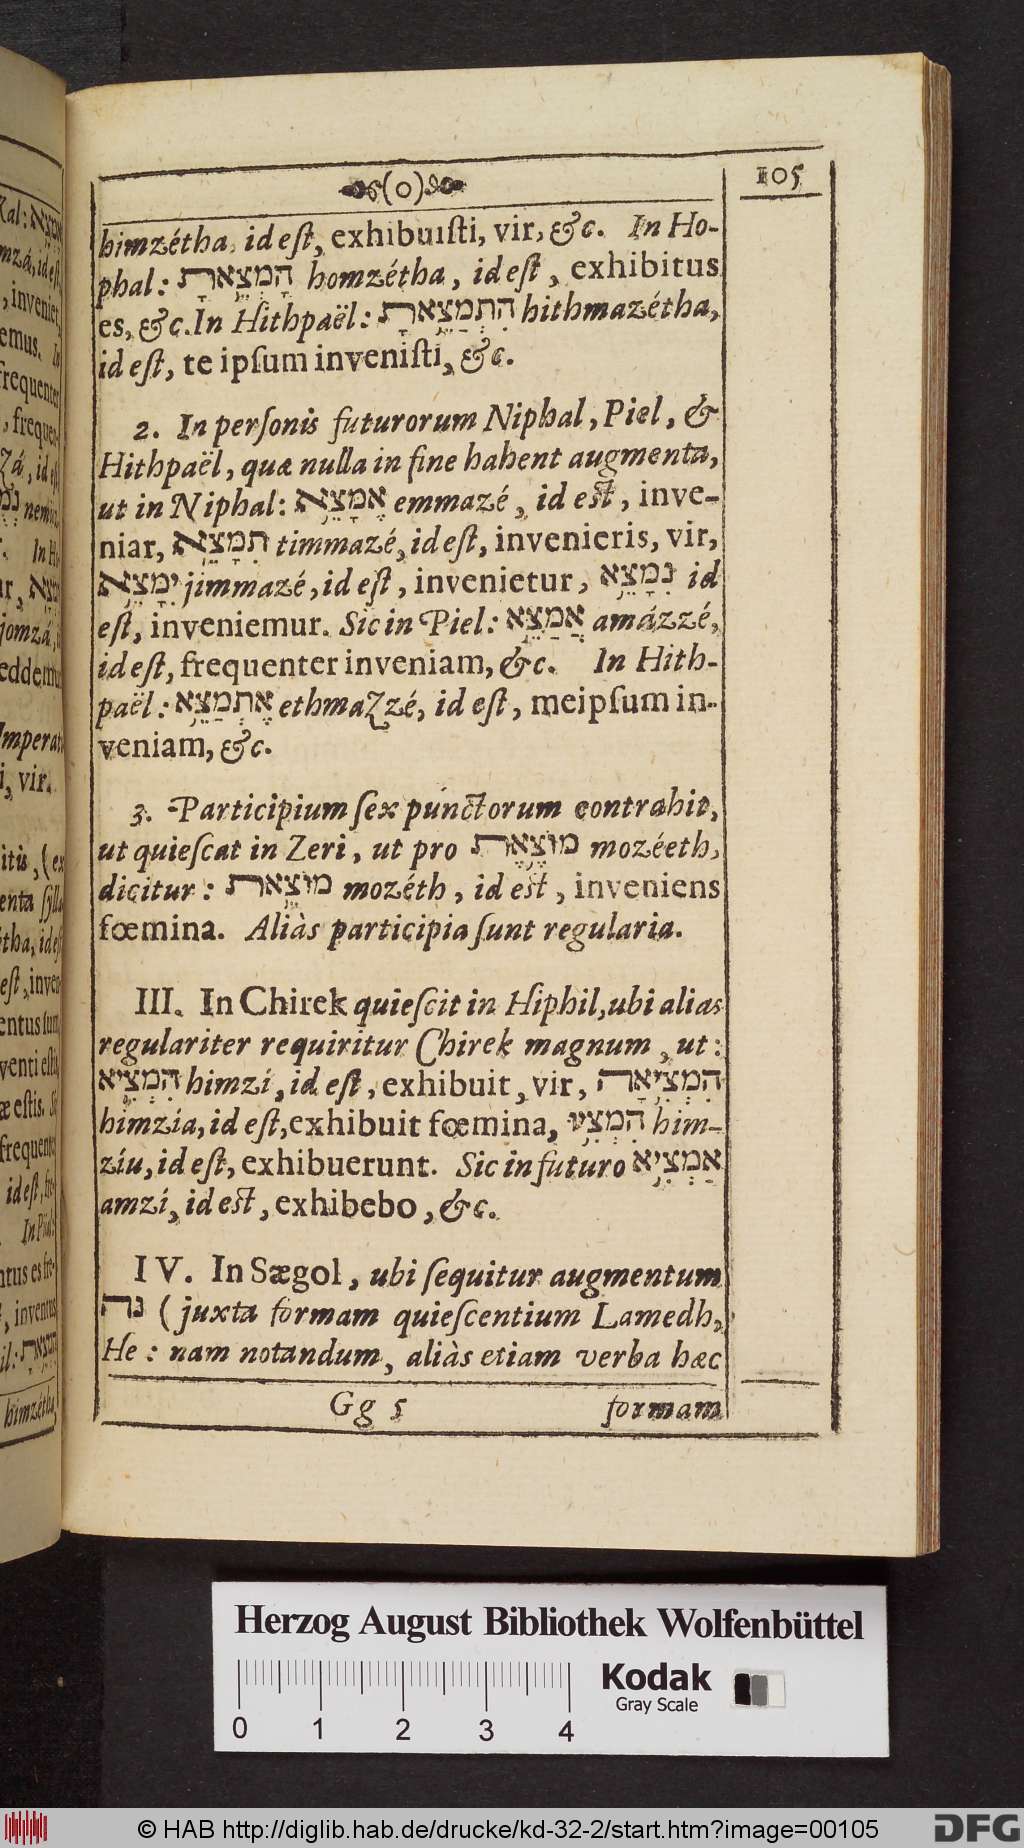 (o) 105
himzétha, id eſt, exhibuiſti, vir, &c. In Ho-
phal: הָמְצֵאתָ homzétha, id eſt, exhibitus
es, &c. In Hithpaël: הִתְמַצֵּאתָ hithmazétha,
id eſt, te ipſum inveniſti, &c.
2. In perſonis futurorum Niphal, Piel, &
Hithpaël, quæ nulla in fine habent augmenta,
ut in Niphal: אֶמָּצֵא emmazé, id eſt, inve-
niar, תִמָּצֵא timmazé, id eſt, invenieris, vir,
יִמָּצֵא jimmazé, id eſt, invenietur, נִמָּצֵא id
eſt, inveniemur. Sic in Piel: אֲמַצֵּא amázzé,
id eſt, frequenter inveniam, &c. In Hith-
paël: אֶתְמַצֵּא ethmazzé, id eſt, meipſum in-
veniam, &c.
3. Participium ſex punctorum contrahit,
ut quieſcat in Zeri, ut pro מוֹצֶאֶת mozéeth,
dicitur: מוֹצֵאת mozéth, id eſt, inveniens
fœmina. Aliàs participia ſunt regularia.
III. In Chirek quieſcit in Hiphil, ubi alias
regulariter requiritur Chirek magnum, ut:
הִמְצִיא himzi, id eſt, exhibuit, vir, הִמְצִיאָה
himzía, id eſt, exhibuit fœmina, הִמְצִיאוּ him-
zíu, id eſt, exhibuerunt. Sic in futuro אַמְצִיא
amzí, id eſt, exhibebo, &c.
IV. In Sægol, ubi ſequitur augmentum
נה (juxta formam quieſcentium Lamedh,
He: nam notandum, aliàs etiam verba hæc
Gg 5 formam
Herzog August Bibliothek Wolfenbüttel
Kodak
Gray Scale
0 1 2 3 4
© HAB http://diglib.hab.de/drucke/kd-32-2/start.htm?image=00105
DFG